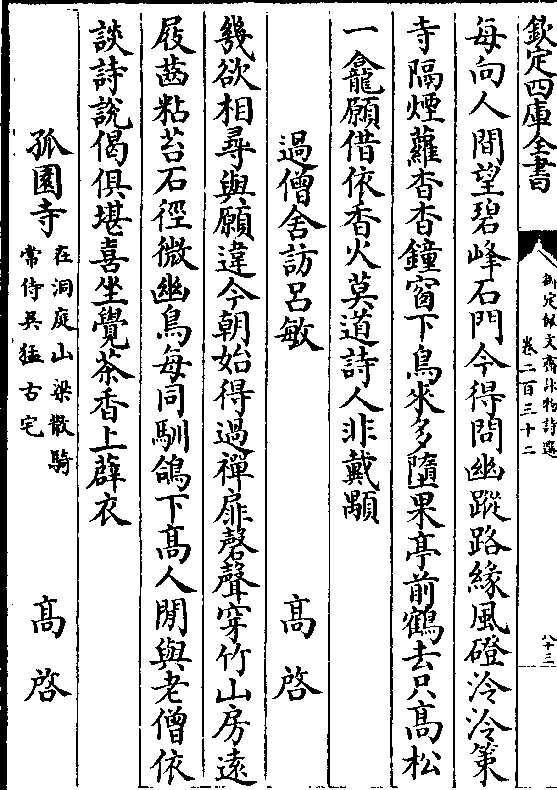 欽定四庫全書
御定佩文齋詠物詩選
卷二百三十二
八十三
每向人間望碧峰石門今得問幽蹤路緣風磴泠泠策
寺隔煙蘿杳杳鐘窗下鳥來多墮果亭前鶴去只髙松
一龕願借依香火莫道詩人非戴顒
過僧舍訪呂敏
髙啓
幾欲相尋與願違今朝始得過禪扉磬聲穿竹山房遠
屐齒粘苔石徑微幽鳥每同馴鴿下髙人閒與老僧依
談詩說偈俱堪喜坐覺茶香上薜衣
孤園寺
在洞庭山梁散騎
常侍吳猛古宅
髙啓